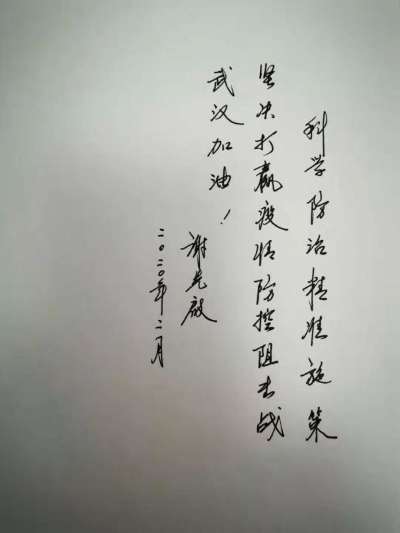 科学防治精准施策
坚决打赢疫情防控阻击战
武汉加油！
谢先启
二〇二〇年二月